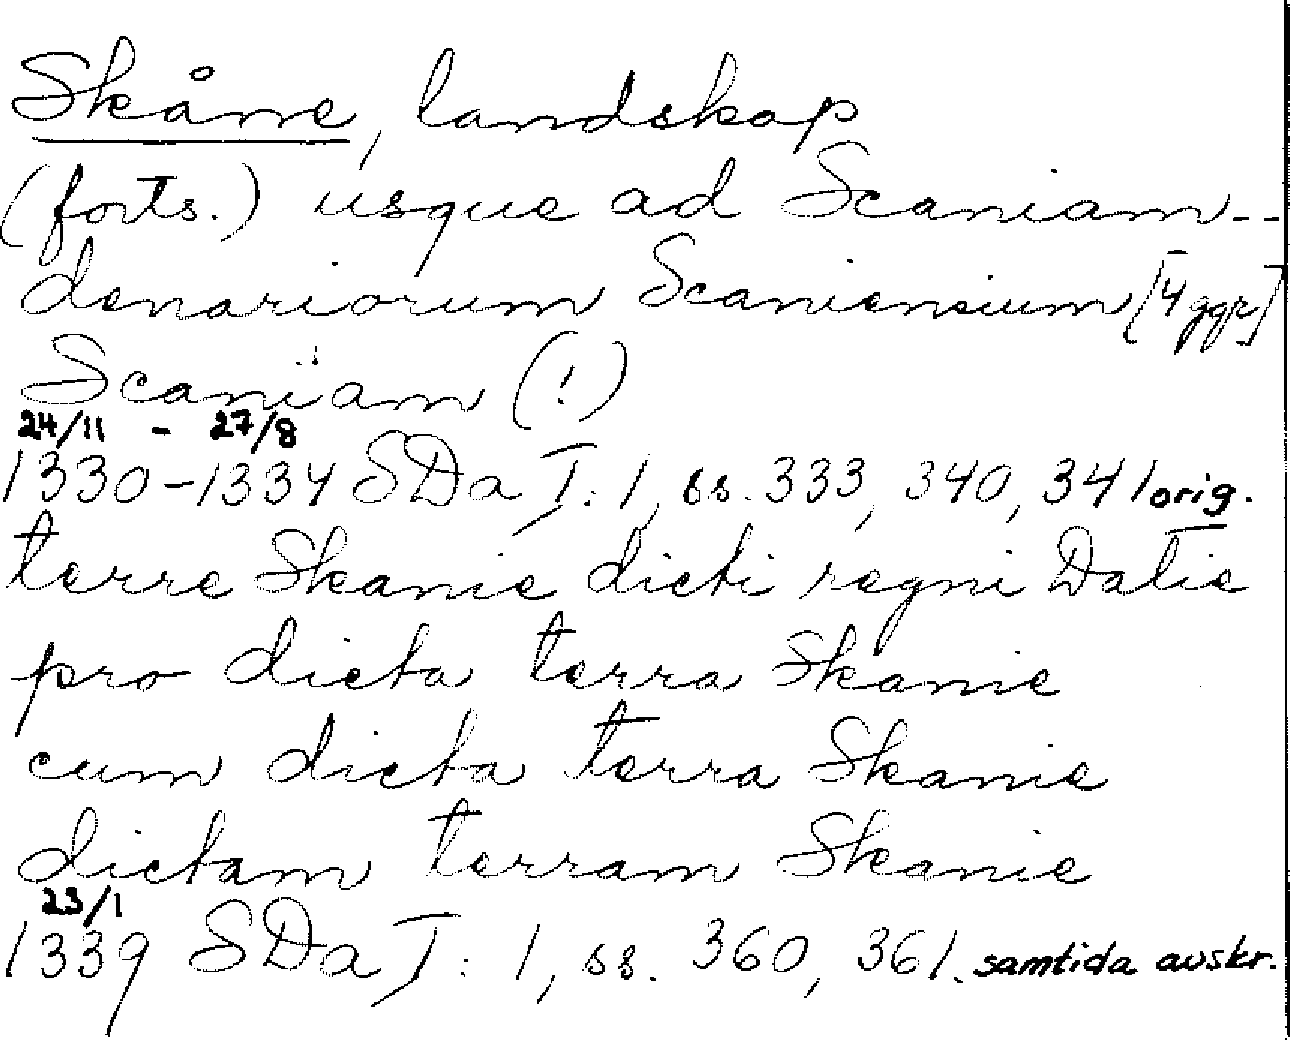 Skåne, landskap
(forts.) usque ad Scaniam--
denariorum Scaniensium [4 ggr]
Scaniam (!)
24/11 - 27/8
1330-1334 SDa I:1, ss. 333, 340, 341 orig.
terre Skanie dicti regni Datie
pro dicta terra Skanie
cum dicta terra Skanie
dictam terram Skanie
23/1
1339 SDa I:1, ss. 360, 361. samtida avskr.